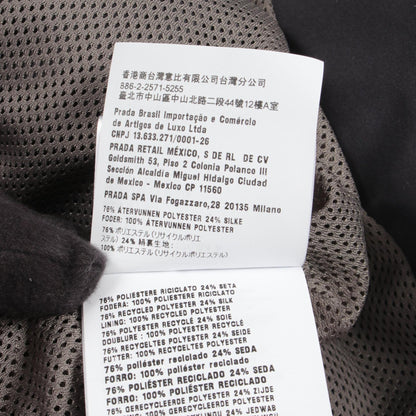 香港商台灣意比有限公司台灣分公司
886-2-2571-5255
臺北市中山區中山北路二段44號12樓A室
Prada Brasil Importação e Comércio
de Artigos de Luxo Ltda
CNPJ 13.633.271/0001-26
PRADA RETAIL MÉXICO, S DE RL DE CV
Goldsmith 53, Piso 2 Colonia Polanco III
Sección Alcaldía Miguel Hidalgo Ciudad
de Mexico - Mexico CP 11560
PRADA SPA Via Fogazzaro, 28 20135 Milano
76% ÅTERVUNNEN POLYESTER 24% SILKE
FODER: 100% ÅTERVUNNEN POLYESTER
76% ポリエステル(リサイクルポリエ
ステル) 24% 絹裏生地:
100% ポリエステル(リサイクルポリエステル)
76% POLIESTERE RICICLATO 24% SETA
FODERA: 100% POLIESTERE RICICLATO
76% RECYCLED POLYESTER 24% SILK
LINING: 100% RECYCLED POLYESTER
76% POLYESTER RECYCLÉ 24% SOIE
DOUBLURE : 100% POLYESTER RECYCLÉ
76% RECYCELTES POLYESTER 24% SEIDE
FUTTER: 100% RECYCELTES POLYESTER
76% poliéster reciclado 24% SEDA
FORRO: 100% poliéster reciclado
76% POLIÉSTER RECICLADO 24% SEDA
FORRO: 100% POLIÉSTER RECICLADO
76% GERECYCLEERDE POLYESTER 24% ZIJDE